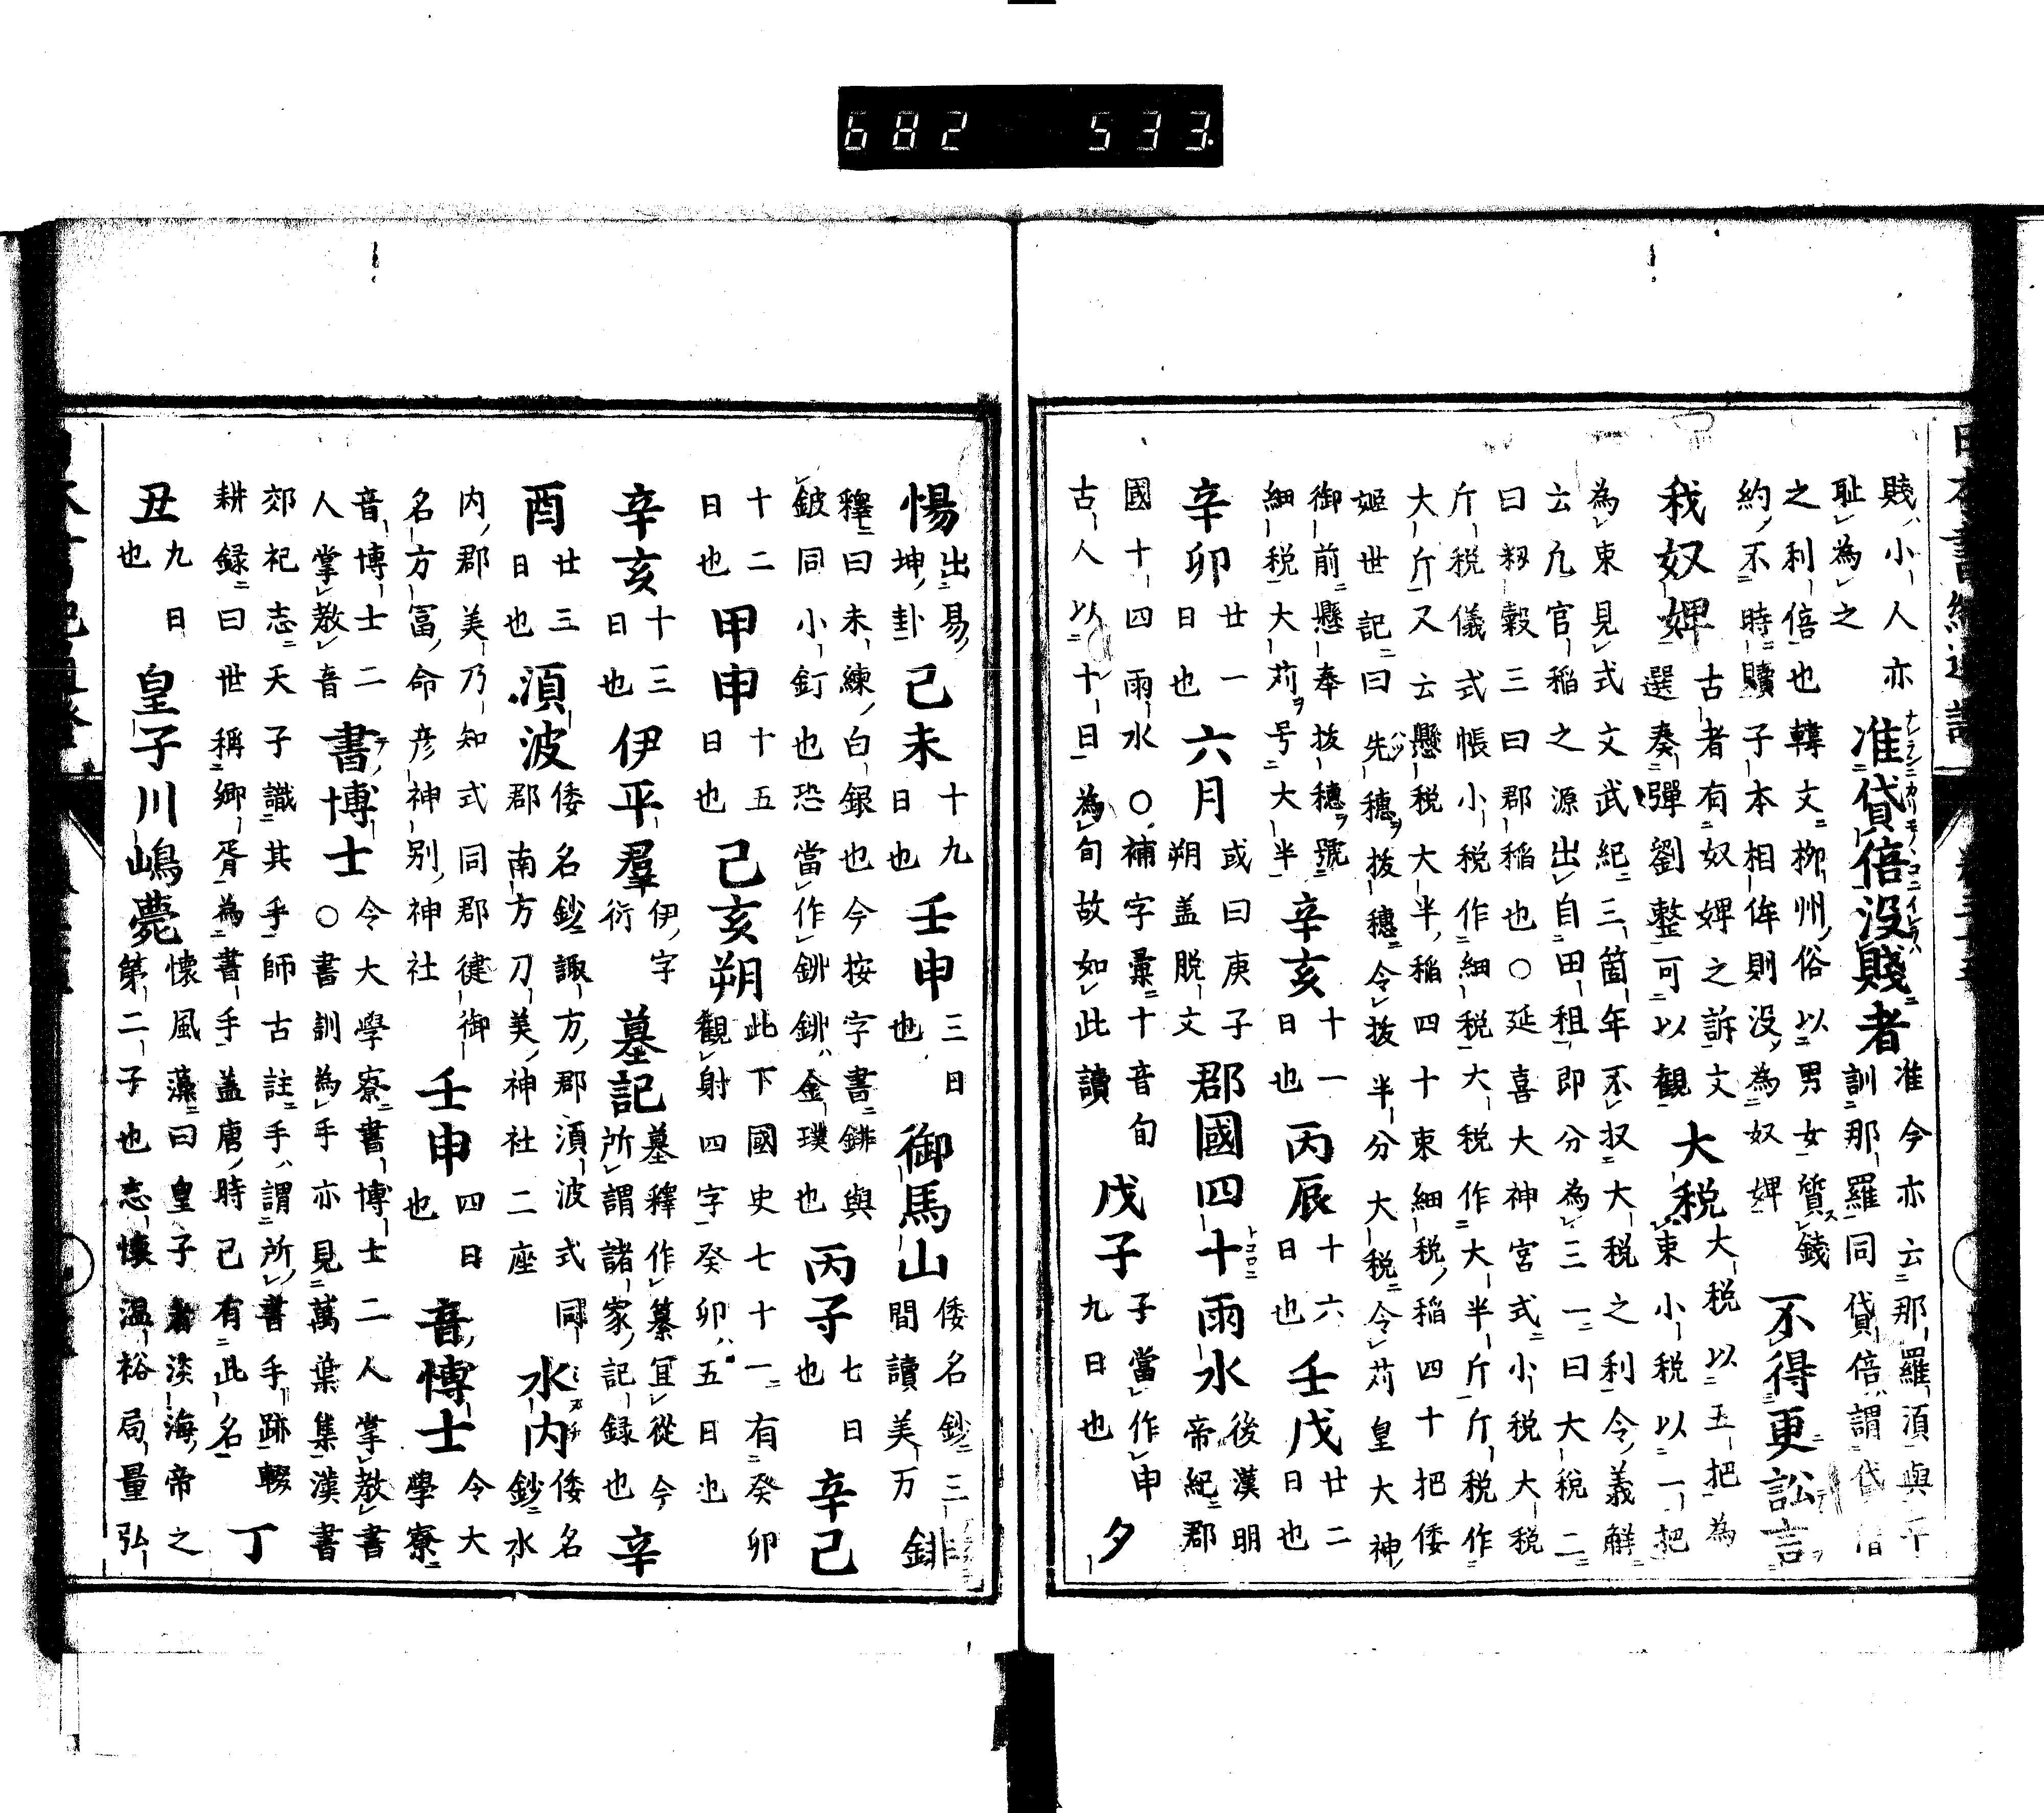 賤小人亦
耻為之
准貸倍没賤者
准今亦云那羅須與平
訓那羅同貸倍謂貸
之利倍也韓文柳州俗以男女質錢
約不時贖子本相侔則没為奴婢
不得更訟言
我奴婢
古者有奴婢之訴文
選奏彈劉整可以觀
大税
大税以五把為
束小税以一把
為束見式文武紀三箇年不収大税之利令義解
云凡官稲之源出自田租即分為三一曰大税二
曰籾穀三曰郡稲也○延喜大神宮式小税大税
斤税儀式帳小税作細税大税作大半斤斤税作
大斤又云懸税大半稲四十束細税稲四十把倭
姬世記曰先穗抜穗令抜半分大税令苅皇大神
御前懸奉抜穗號
細税大苅号大半
辛亥
十一
日也
丙辰
十六
日也
壬戌
廿二
日也
辛卯
廿一
日也
六月
或曰庚子
朔盖脱文
郡國四十雨水
後漢明
帝紀郡
國十四雨水○補字彙十音旬
古人以十日為旬故如此讀
戊子
子當作申
九日也
夕
惕
出易
坤卦
己未
十九
日也
壬申
三日
也
御馬山
倭名鈔三
間讀美万
錍
釋曰未練白銀也今按字書錍與
鈹同小釘也恐當作鉳鉳金璞也
丙子
七日
也
辛己
十二
日也
甲申
十五
日也
己亥朔
此下國史七十一有癸卯
觀射四字癸卯五日也
辛亥
十三
日也
伊平羣
伊字
衍
墓記
墓釋作纂宜從今
所謂諸家記録也
辛
酉
廿三
日也
湏波
倭名鈔諏方郡湏波式同
郡南方刀美神社二座
水内
倭名
鈔水
内郡美乃知式同郡健御
名方冨命彦神别神社
壬申
四日
也
音博士
令大
學寮
音博士二
人掌教音
書博士
令大學寮書博士二人掌教書
○書訓為手亦見萬葉集漢書
郊祀志天子識其手師古註手謂所書手跡輟
耕録曰世稱卿胥為書手盖唐時己有此名
丁
丑
九日
也
皇子川嶋薨
懷風藻曰皇子者淡海帝之
第二子也志懷温裕局量弘
682 533